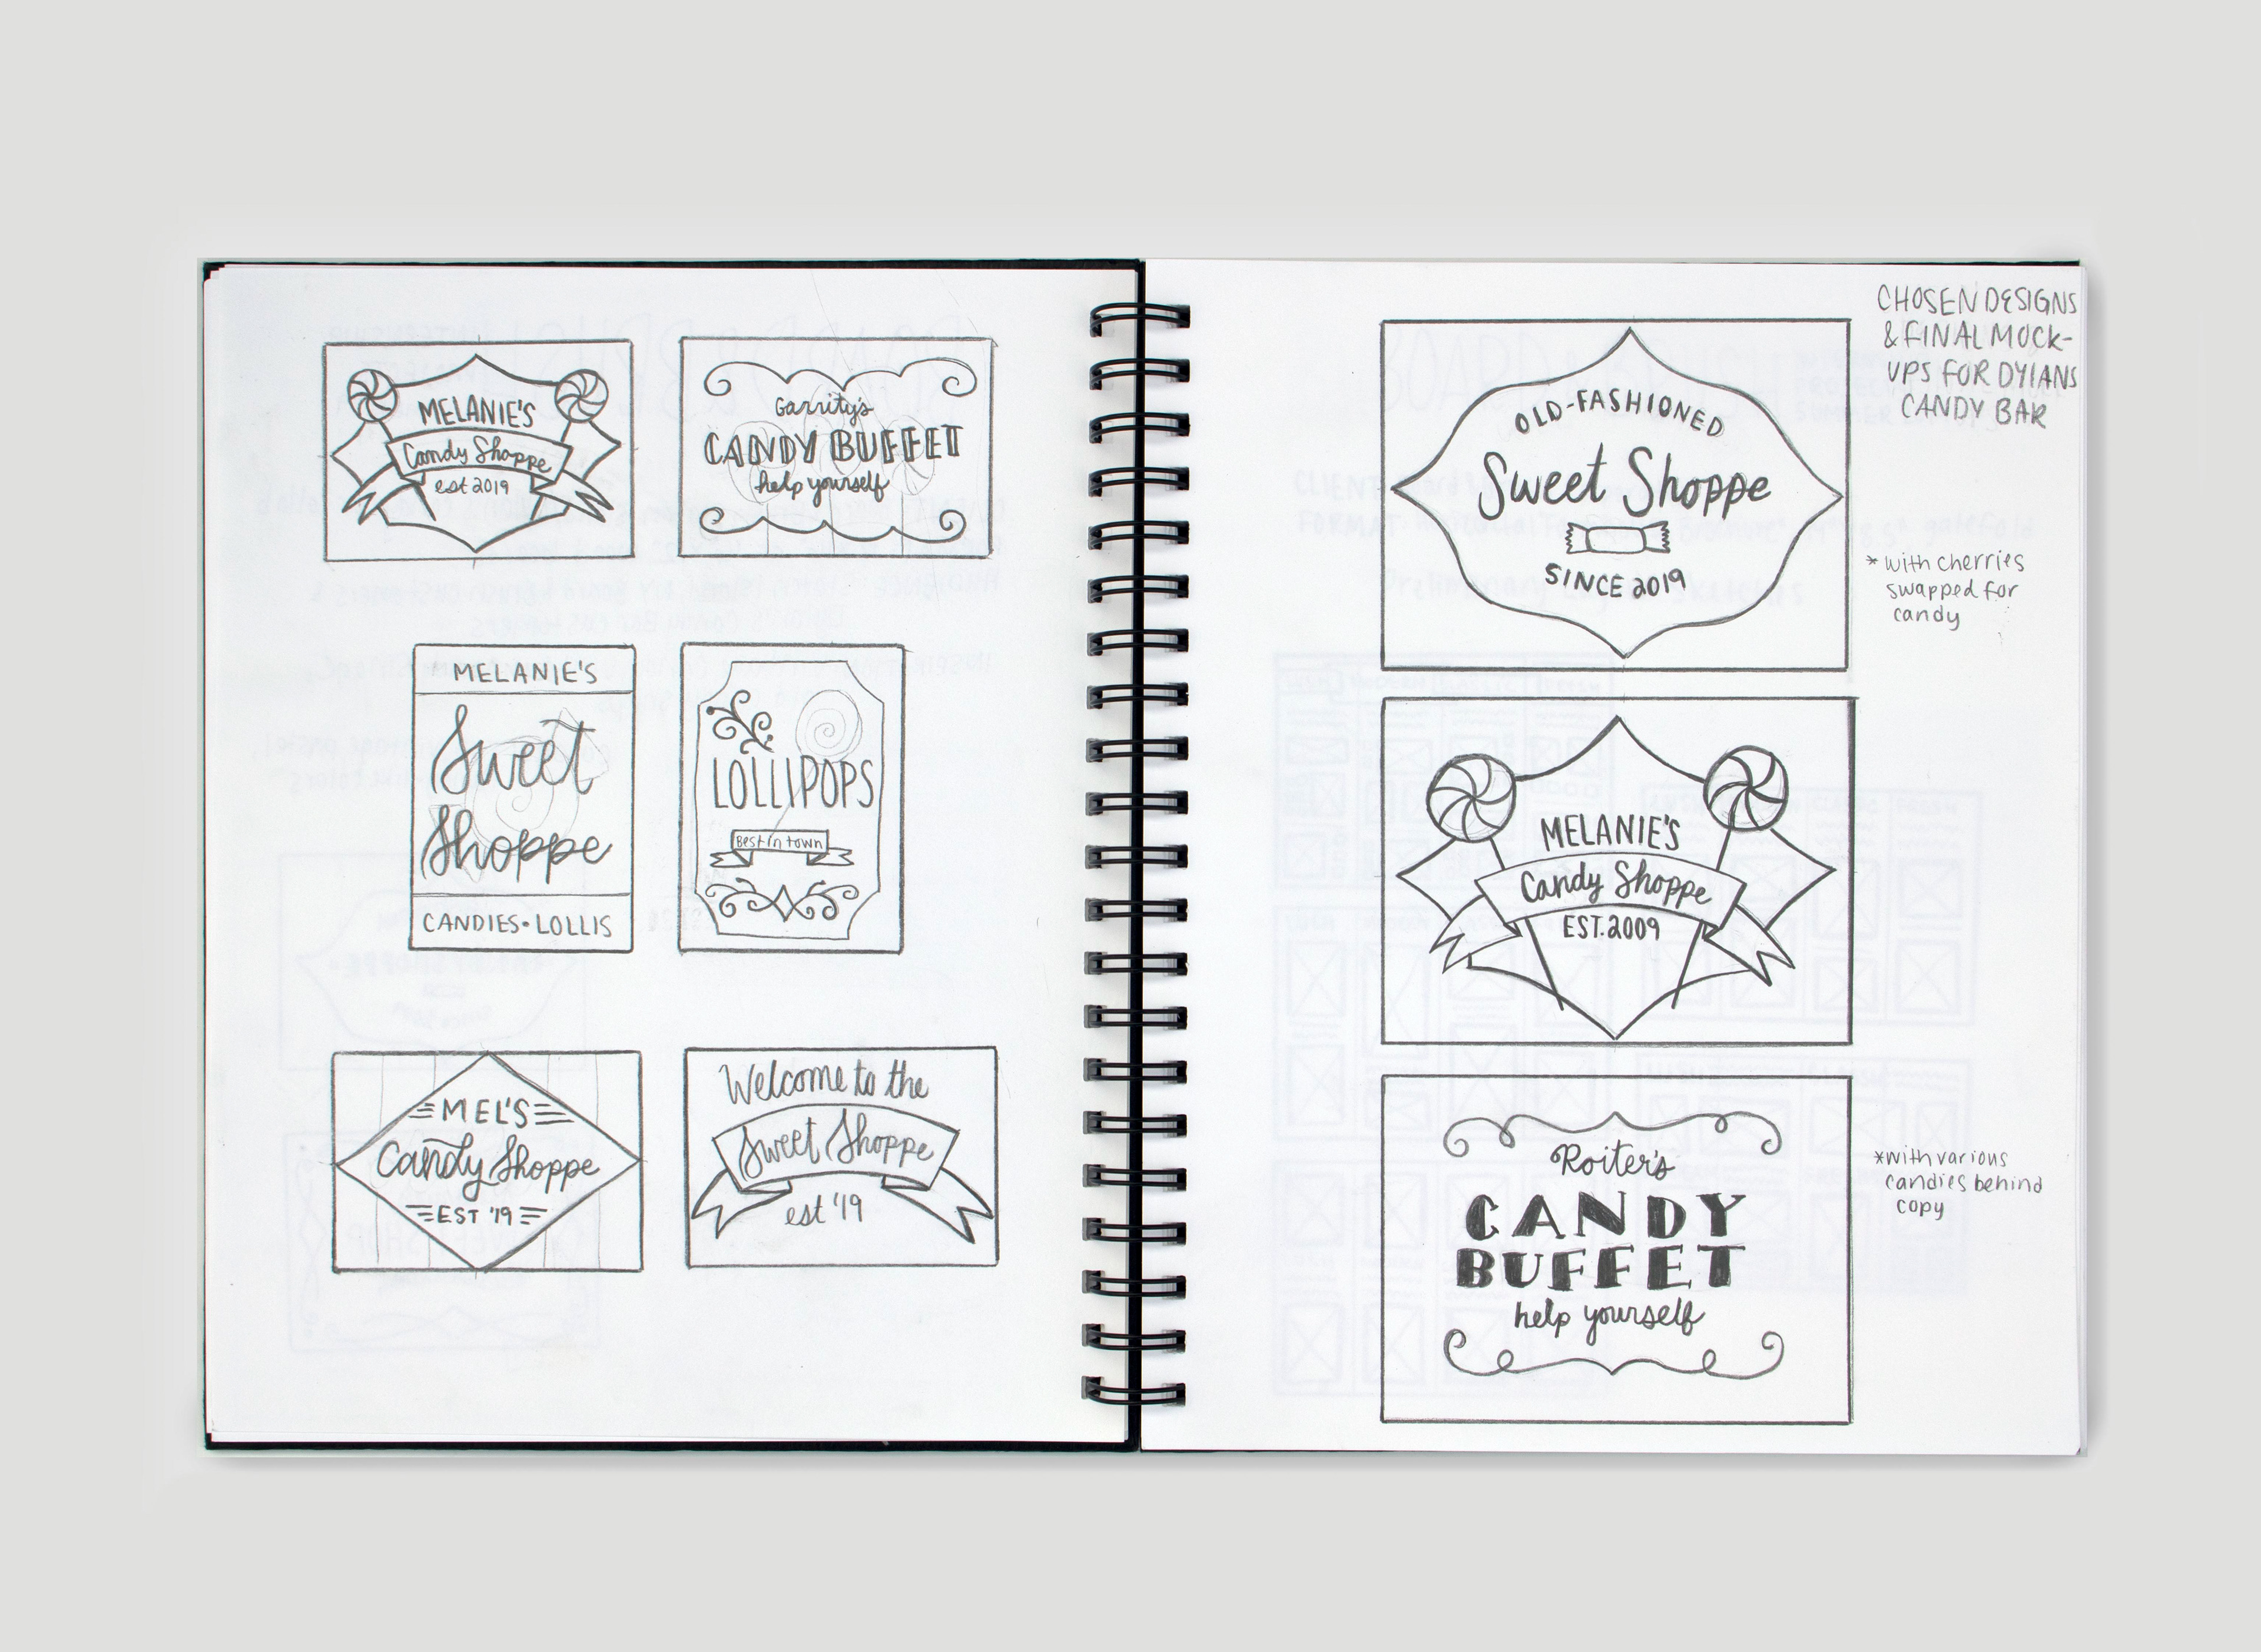 MELANIE'S
Candy Shoppe
est 2019
Garrity's
CANDY BUFFET
help yourself
MELANIE'S
Sweet
Shoppe
CANDIES • LOLLIS
LOLLIPOPS
Best in town
MEL'S
Candy Shoppe
EST '19
Welcome to the
Sweet Shoppe
est '19
CHOSEN DESIGNS
& FINAL MOCK-
UPS FOR DYLANS
CANDY BAR
OLD-FASHIONED
Sweet Shoppe
SINCE 2019
* with cherries
swapped for
candy
MELANIE'S
Candy Shoppe
EST. 2009
Roiter's
CANDY
BUFFET
help yourself
* with various
candies behind
copy